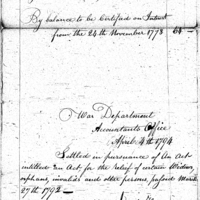 By balance to be Certified on Interest
from the 24th November 1778 64 -
War Department
Accountants Office
April 4th 1794
Settled in pursuance of An Act
intitled An Act, for the relief of certain Widows,
orphans, invalids and other persons, passed March
27th 1792 -